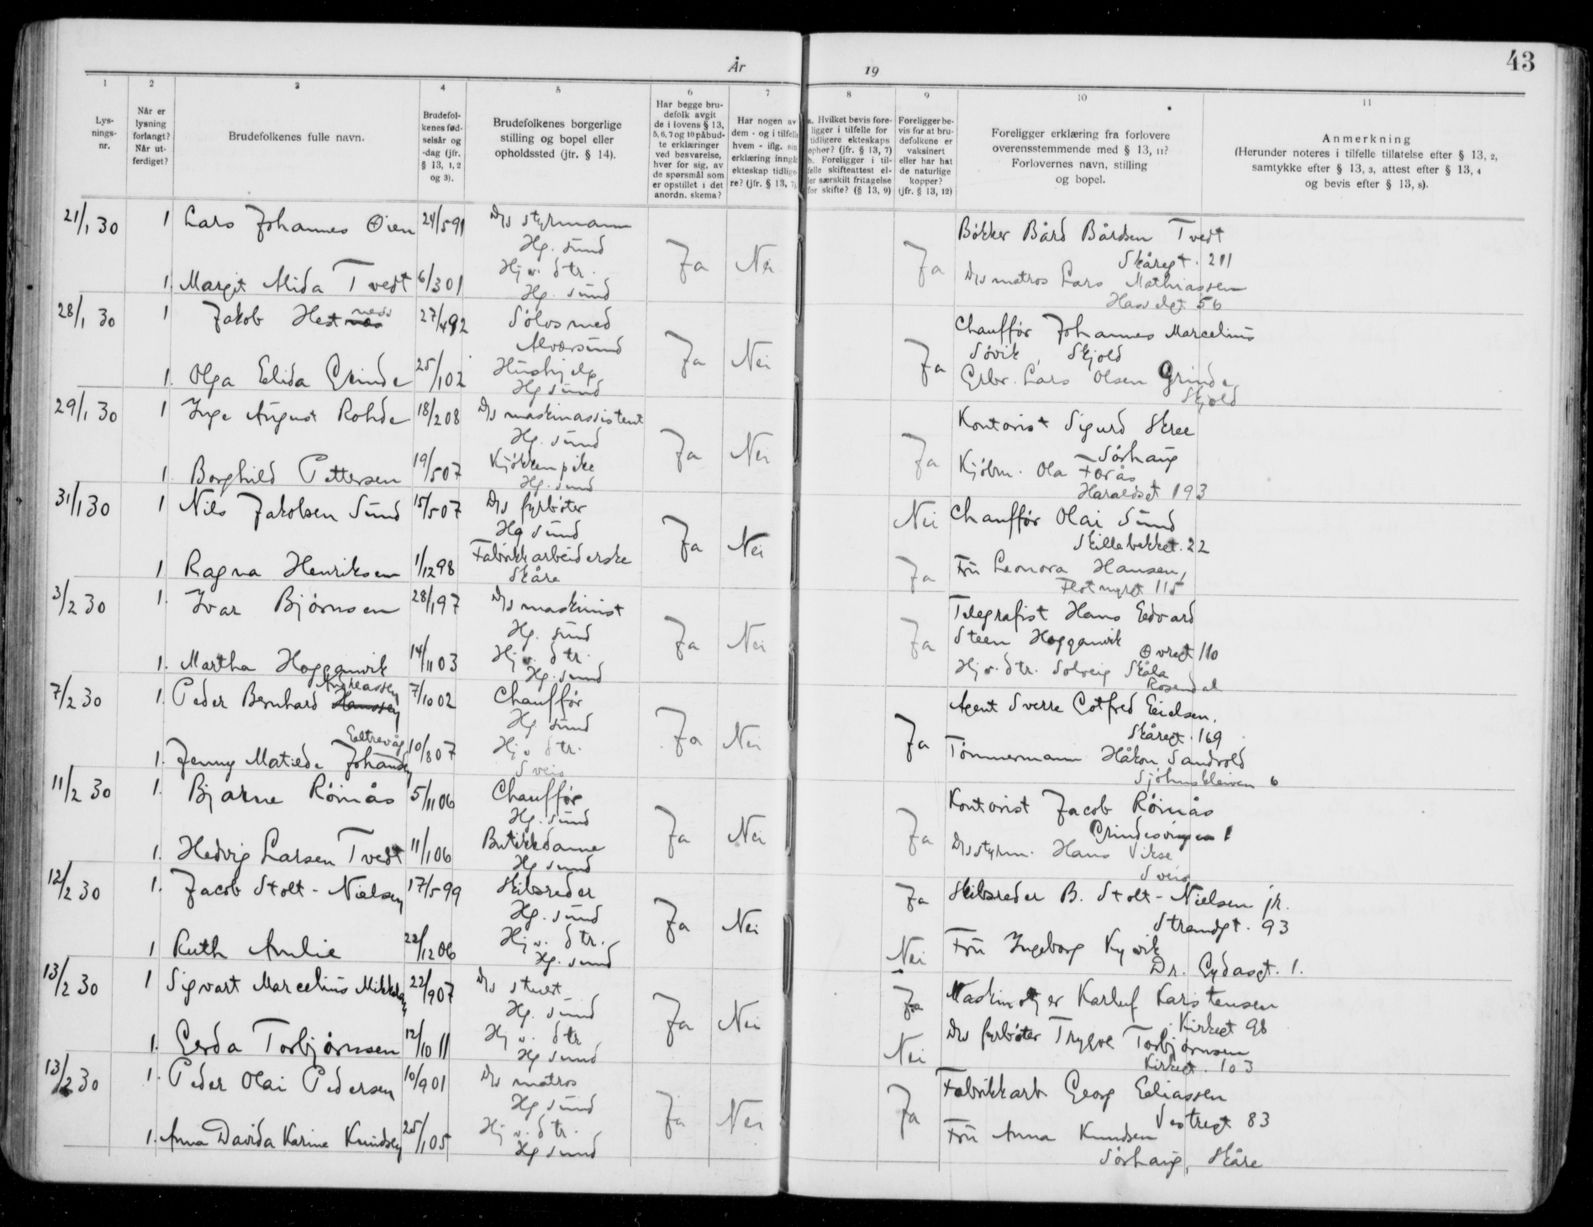 År 19 43
1 2 3 4 5 6 7 8 9 10 11
Lysnings-nr.
Når er lysning forlangt? Når utferdiget?
Brudefolkenes fulle navn.
Brudefolkenes fødselsår og -dag (jfr. § 13, 1, 2 og 3).
Brudefolkenes borgerlige stilling og bopel eller opholdssted (jfr. § 14).
Har begge brudefolk avgit de i lovens § 13, 5, 6, 7 og 10 påbudte erklæringer ved besvarelse, hver for sig, av de spørsmål som er opstillet i det anordn. skema?
Har nogen av dem - og i tilfelle hvem - illg. sin erklæring inngått ekteskap tidligere? (jfr. § 13, 7).
a. Hvilket bevis foreligger i tilfelle for tidligere ekteskaps ophør? (jfr. § 13, 7)
b. Foreligger i tilfelle skifteattest eller særskilt fritagelse for skifte? (§ 13, 9)
Foreligger bevis for at brudefolkene er vaksinert eller har hat de naturlige kopper? (jfr. § 13, 12)
Foreligger erklæring fra forlovere overensstemmende med § 13, 11? Forlovernes navn, stilling og bopel.
Anmerkning
(Herunder noteres i tilfelle tillatelse efter § 13, 2, samtykke efter § 13, 3, attest efter § 13, 4 og bevis efter § 13, 8).
21/1 30 1 Lars Johannes Øien 24/5 91 D/s styrmann Ja Nei Ja Bøkker Bård Bårdsen Tvedt
Hg. sund Skåregt. 211
1. Margit Alida Tvedt 6/3 01 Hj. v. str. D/s matros Lars Mathiassen
Hg. sund Hasselgt 56
28/1 30 1 Jakob Hestnes 27/4 92 Sølvsmed Ja Nei Ja Chauffør Johannes Marcelius
Alversund Søvik, Skjold
1. Olga Elida Grinde 25/1 02 Hushjelp Grbr. Lars Olsen Grinde
Hg sund Skjold
29/1 30 1 Inge August Rohde 18/2 08 D/s maskinassistent Ja Nei Ja Kontorist Sigurd Skree
Hg. sund Sørhaug
1. Borghild Pettersen 19/5 07 Kjøkkenpike Kjøbm. Ola Førås
Hg. sund Haraldsgt 193
31/1 30 1 Nils Jakobsen Sund 15/5 07 D/s fyrbøter Ja Nei Nei Chauffør Olai Sund
Hg sund Skillebekkgt. 22
1 Ragna Henriksen 1/12 98 Fabrikkarbeiderske Ja Fru Leonora Hansen,
Skåre Flotmyrgt 115
3/2 30 1. Ivar Bjørnsen 28/1 97 D/s maskinist Ja Nei Ja Telegrafist Hans Edvard
Hg. sund Steen Hogganvik Øvregt 110
1. Martha Hogganvik 14/11 03 Hj. v. str. Hj. v. str. Solveig Skåla
Hg. sund Rosendal
7/2 30 1. Peder Bernhard Hanssen Andreassen 7/10 02 Chauffør Ja Nei Ja Agent Sverre Gotfred Eielsen.
Hg sund Skåregt. 169
1. Jenny Matilde Johansen Eeltrevåg 10/8 07 Hj. v. str. Tømmermann Håkon Sandvold
Sveio Sjøhuskleiven 6
11/2 30 1. Bjarne Röinås 5/11 06 Chauffør Ja Nei Ja Kontorist Jacob Röinås
Hg. sund Grindesvingen 1
1. Hedvig Larsen Tvedt 11/1 06 Butikkdame D/s styrm. Hans Vikse
Hg sund Sveio
12/2 30 1. Jacob Stolt-Nielsen 17/5 99 Skibsreder Ja Nei Ja Skibsreder B. Stolt-Nielsen jr.
Hg. sund Strandgt. 93
1 Ruth Amlie 22/12 06 Hj. v. str. Nei Fru Ingeborg Kyvik
Hg. sund Dr. Eydasgt. 1.
13/2 30 1 Sigvart Marcelius Mikkelsen 22/9 07 D/s stuert Ja Nei Ja Maskinskjer Karluf Karstensen
Hg. sund Kirkegt 98
1. Gerda Torbjørnsen 12/10 11 Hj. v. str Nei D/s fyrbøter Trygve Torbjørnsen
Hg sund Kirkegt. 103
13/2 30 1. Peder Olai Pedersen 10/9 01 D/s matros Ja Nei Ja Fabrikkarb Georg Eeliassen
Hg sund Vestregt 83
1. Anna Davida Karine Knudsen 25/1 05 Hj. v. str. Fru Anna Knudsen
Hg sund Sørhaug, Skåre